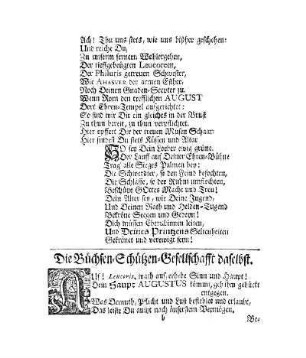 Ach! Thu uns stets, wie uns bißher geschehen:
Und reiche Du,
Zu unserm fernern Wohlergehen,
Der tieffgebeugten Leucoreen,
Der Philuris getreuen Schwester,
Wie AHASVER der armen Esther,
Noch Deinen Gnaden-Scepter zu.
Wenn Rom den trefflichen AUGUST
Dort Ehren-Tempel aufgerichtet:
So sind wir Dir ein gleiches in der Brust
Zu thun bereit, zu thun verpflichtet.
Hier opffert Dir der treuen Musen Schaar:
Hier findest Du stets Küssen und Altar
SO sey Dein Lorber ewig grüne.
Der Lauff auf Deiner Ehren-Bühne
Trag' alle Sieges Palmen bey:
Die Schwerdter, so den Feind befochten,
Die Schlösse, so der Ruhm umflochten,
Beschützt GOttes Macht und Treu!
Dein Alter sey, wie Deine Jugend,
Und Deinen Rath und Helden-Tugend
Bekröne Seegen und Gedeyn!
Dich müssen Ehrensäulen
Und Deines Printzens Seltenheiten
Gekrönet und verewigt seyn!
Die Büchsen-Schützen-Gesellschafft daselbst.
AUf! Leucoris, wach auf, erhebe Sinn und Haupt!
Dem Haupt AUGUSTUS kömmt, geh ihm gebückt
entgegen.
Was Demuth, Pflicht und Lust befiehlet und erlaubt,
Das leiste Du anitzt nach äusserstem Vermögen,